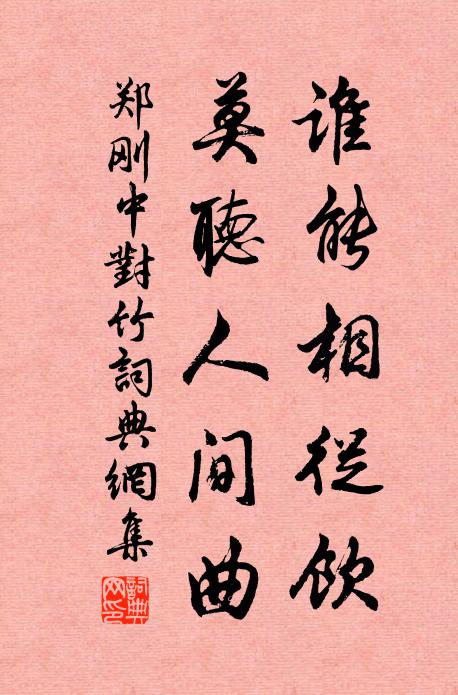 谁能相從饮
莫聽人间曲
郑刚中對竹詞典網集
詞典网印